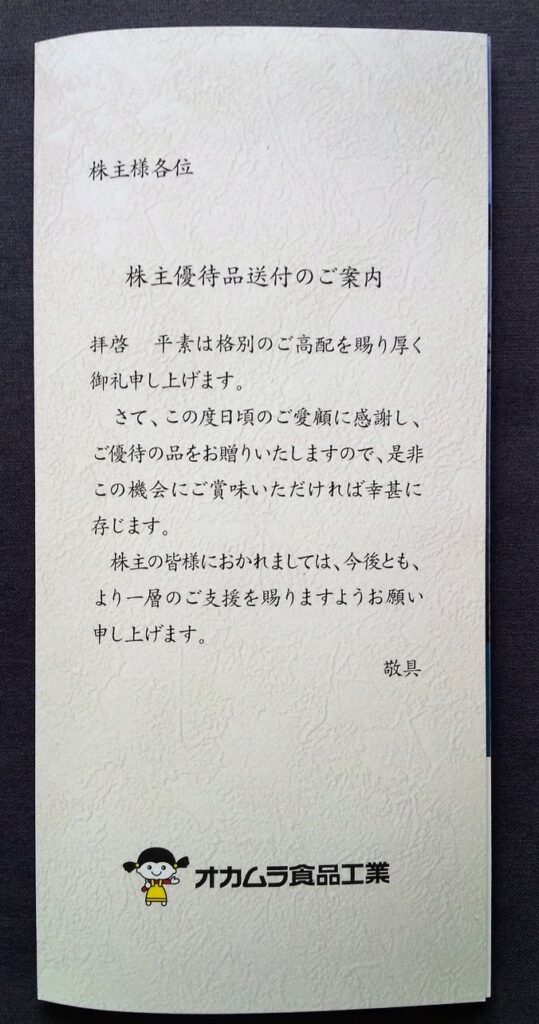 株主様各位
株主優待品送付のご案内
拝啓　平素は格別のご高配を賜り厚く
御礼申し上げます。
　さて、この度日頃のご愛顧に感謝し、
ご優待の品をお贈りいたしますので、是非
この機会にご賞味いただければ幸甚に
存じます。
　株主の皆様におかれましては、今後とも、
より一層のご支援を賜りますようお願い
申し上げます。
敬具
オカムラ食品工業